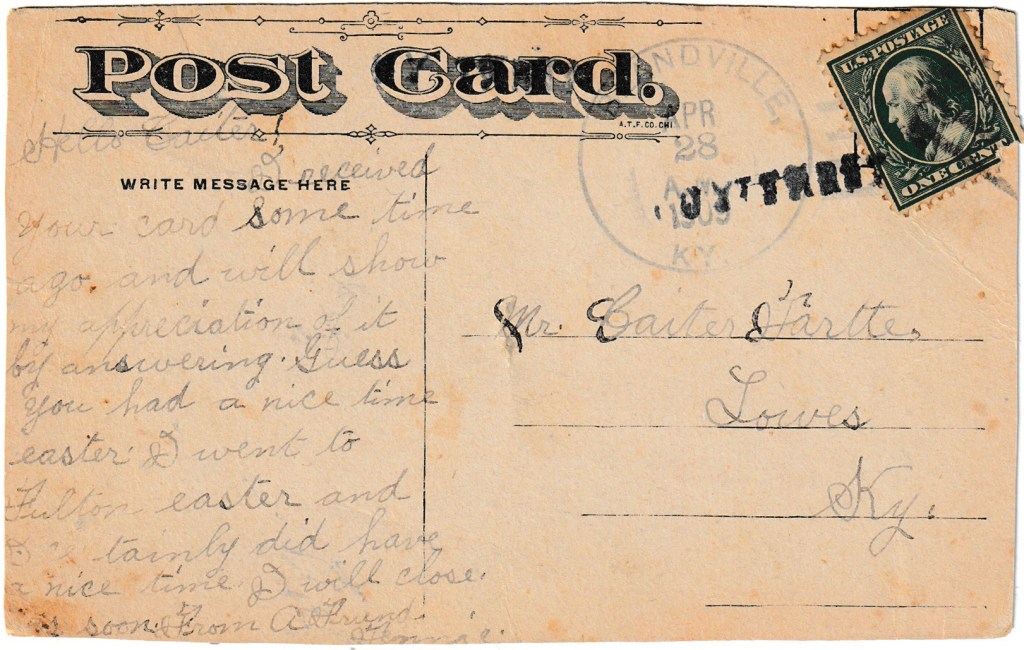 Post Card.
A.T.F.CO.CHI
WRITE MESSAGE HERE
U.S. POSTAGE
ONE CENT
NDVILLE,
APR
28
A.M.
1909
KY.
Hello Caiter!
I received
your card some time
ago, and will show
my appreciation of it
by answering. Guess
you had a nice time
easter. I went to
Fulton easter and
tainly did have
a nice time. I will close.
soon. From A Friend.
Mr. Caiter Hartte,
Lowes
Ky.